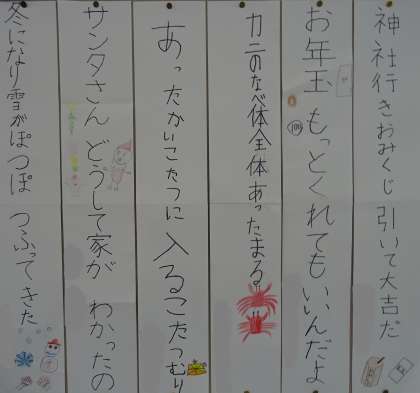 神社行きおみくじ引いて大吉だ
お年玉もっとくれてもいいんだよ
カニのなべ体全体あったまる
あったかいこたつに入るこたつむり
サンタさんどうして家がわかったの
冬になり雪がぽつぽつふってきた